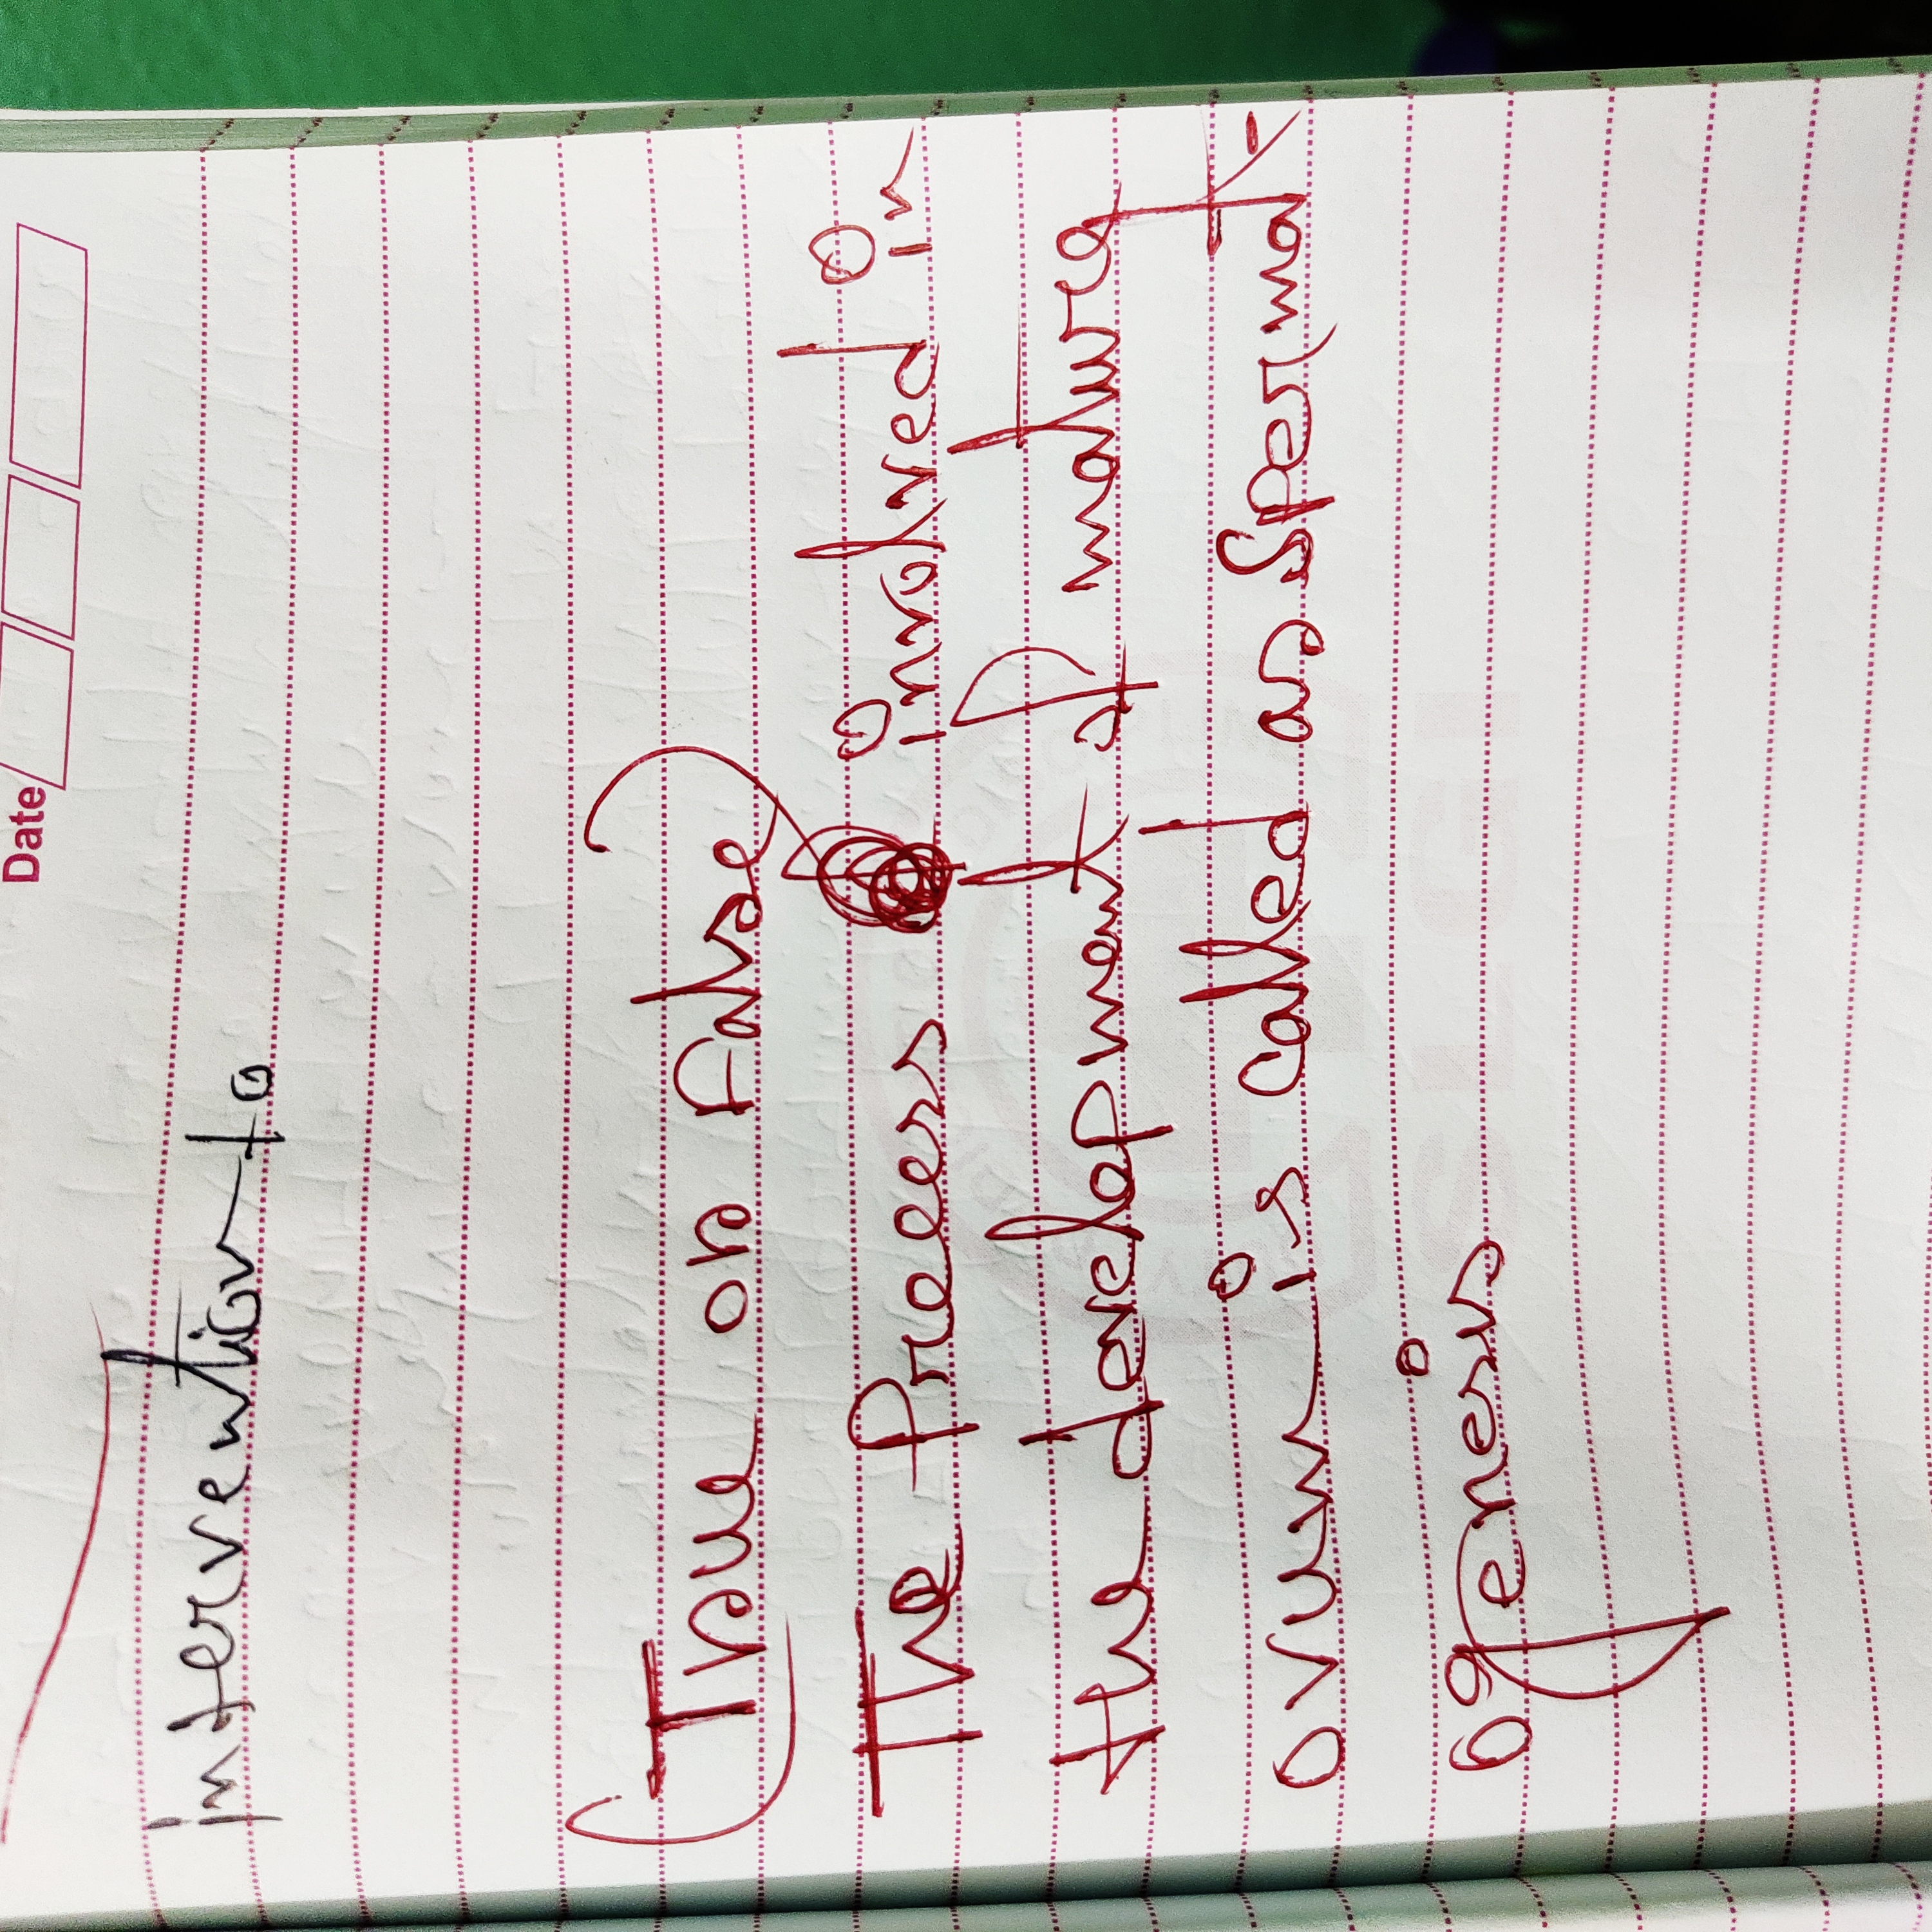 Date
intervention to
(True or False)
The Process involved in
the development of mature
ovum is called as Spermat-
ogenesis